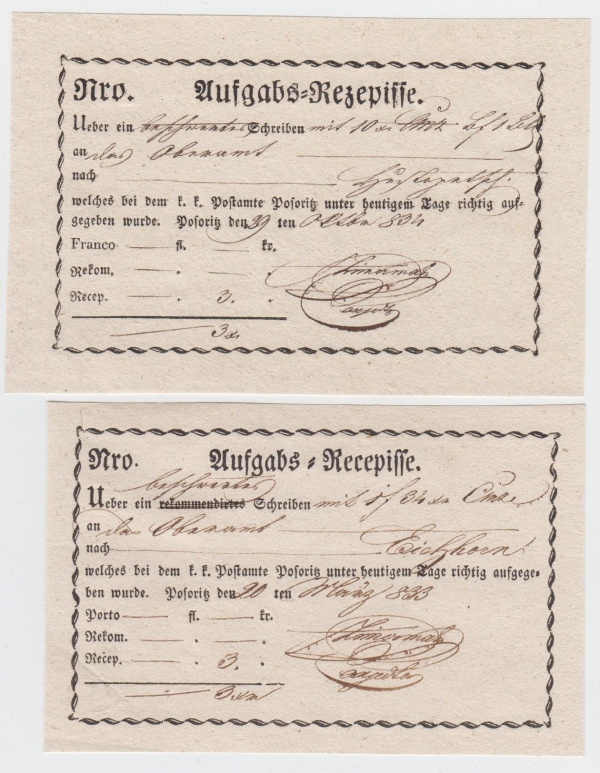 Nro. Aufgabs-Rezepisse.
Ueber ein beschwertes Schreiben mit 10 xr
an das Oberamt
nach
welches bei dem k. k. Postamte Posoritz unter heutigem Tage richtig auf-
gegeben wurde. Posoritz den 29 ten 834
Franco — fl. — kr.
Rekom. — . — .
Recep. — . 3. —
3 xr
Nro. Aufgabs-Recepisse.
beschwertes
Ueber ein rekommendirtes Schreiben mit 1 f 34 xr
an das Oberamt
nach Eichhorn
welches bei dem k. k. Postamte Posoritz unter heutigem Tage richtig aufgege-
ben wurde. Posoritz den 20 ten März 833
Porto — fl. — kr.
Rekom. — . — .
Recep. — . 3. —
3 xr